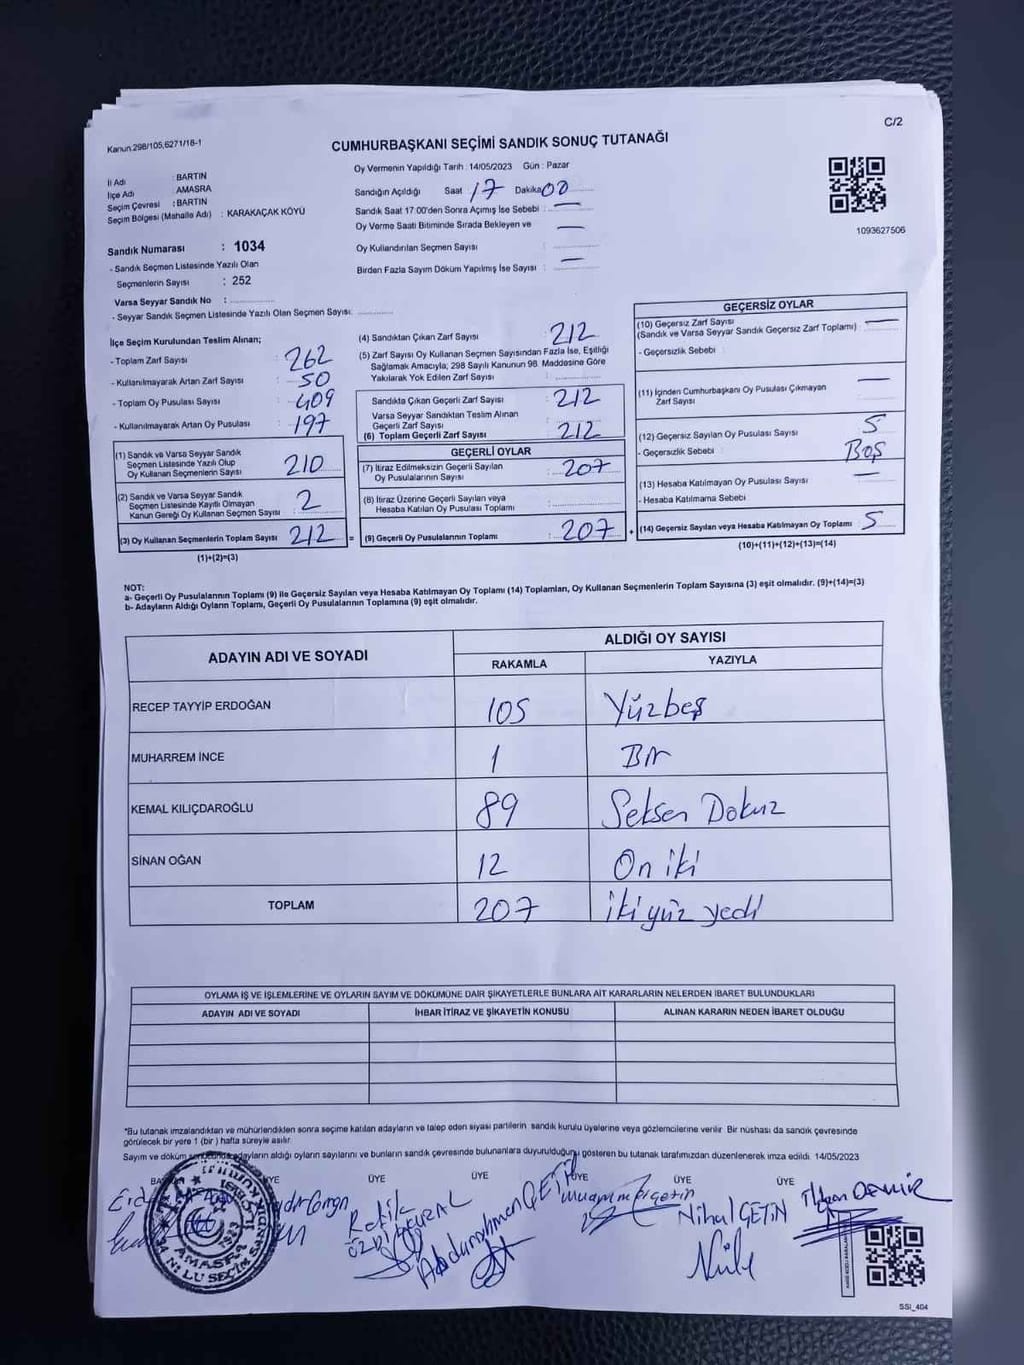 C/2
Kanun.298/105,6271/18-1
CUMHURBAŞKANI SEÇİMİ SANDIK SONUÇ TUTANAĞI
Oy Vermenin Yapıldığı Tarih : 14/05/2023 Gün : Pazar
İl Adı : BARTIN
İlçe Adı : AMASRA
Seçim Çevresi : BARTIN
Seçim Bölgesi (Mahalle Adı) : KARAKAÇAK KÖYÜ
Sandık Numarası : 1034
- Sandık Seçmen Listesinde Yazılı Olan
Seçmenlerin Sayısı : 252
Varsa Seyyar Sandık No :
- Seyyar Sandık Seçmen Listesinde Yazılı Olan Seçmen Sayısı:
Sandığın Açıldığı Saat 17 Dakika 00
Sandık Saat 17:00'den Sonra Açımış İse Sebebi : —
Oy Verme Saati Bitiminde Sırada Bekleyen ve —
Oy Kullandırılan Seçmen Sayısı :
Birden Fazla Sayım Döküm Yapılmış İse Sayısı : —
1093627506
İlçe Seçim Kurulundan Teslim Alınan;
- Toplam Zarf Sayısı : 262
- Kullanılmayarak Artan Zarf Sayısı : 50
- Toplam Oy Pusulası Sayısı : 409
- Kullanılmayarak Artan Oy Pusulası : 197
(1) Sandık ve Varsa Seyyar Sandık
Seçmen Listesinde Yazılı Olup
Oy Kullanan Seçmenlerin Sayısı : 210
(2) Sandık ve Varsa Seyyar Sandık
Seçmen Listesinde Kayıtlı Olmayan
Kanun Gereği Oy Kullanan Seçmen Sayısı : 2
(3) Oy Kullanan Seçmenlerin Toplam Sayısı : 212 =
(1)+(2)=(3)
(4) Sandıktan Çıkan Zarf Sayısı : 212
(5) Zarf Sayısı Oy Kullanan Seçmen Sayısından Fazla İse, Eşitliği
Sağlamak Amacıyla; 298 Sayılı Kanunun 98. Maddesine Göre
Yakılarak Yok Edilen Zarf Sayısı :
Sandıkta Çıkan Geçerli Zarf Sayısı : 212
Varsa Seyyar Sandıktan Teslim Alınan
Geçerli Zarf Sayısı :
(6) Toplam Geçerli Zarf Sayısı : 212
GEÇERLİ OYLAR
(7) İtiraz Edilmeksizin Geçerli Sayılan
Oy Pusulalarının Sayısı : 207
(8) İtiraz Üzerine Geçerli Sayılan veya
Hesaba Katılan Oy Pusulası Toplamı :
(9) Geçerli Oy Pusulalarının Toplamı : 207 +
GEÇERSİZ OYLAR
(10) Geçersiz Zarf Sayısı
(Sandık ve Varsa Seyyar Sandık Geçersiz Zarf Toplamı) : —
- Geçersizlik Sebebi :
(11) İçinden Cumhurbaşkanı Oy Pusulası Çıkmayan
Zarf Sayısı : —
(12) Geçersiz Sayılan Oy Pusulası Sayısı : 5
- Geçersizlik Sebebi : Boş
(13) Hesaba Katılmayan Oy Pusulası Sayısı : —
- Hesaba Katılmama Sebebi :
(14) Geçersiz Sayılan veya Hesaba Katılmayan Oy Toplamı : 5
(10)+(11)+(12)+(13)=(14)
NOT:
a- Geçerli Oy Pusulalarının Toplamı (9) ile Geçersiz Sayılan veya Hesaba Katılmayan Oy Toplamı (14) Toplamları, Oy Kullanan Seçmenlerin Toplam Sayısına (3) eşit olmalıdır. (9)+(14)=(3)
b- Adayların Aldığı Oyların Toplamı, Geçerli Oy Pusulalarının Toplamına (9) eşit olmalıdır.
ADAYIN ADI VE SOYADI
ALDIĞI OY SAYISI
RAKAMLA YAZIYLA
RECEP TAYYİP ERDOĞAN 105 Yüzbeş
MUHARREM İNCE 1 Bir
KEMAL KILIÇDAROĞLU 89 Seksen Dokuz
SİNAN OĞAN 12 On iki
TOPLAM 207 iki yüz yedi
OYLAMA İŞ VE İŞLEMLERİNE VE OYLARIN SAYIM VE DÖKÜMÜNE DAİR ŞİKAYETLERLE BUNLARA AİT KARARLARIN NELERDEN İBARET BULUNDUKLARI
ADAYIN ADI VE SOYADI İHBAR İTİRAZ VE ŞİKAYETİN KONUSU ALINAN KARARIN NEDEN İBARET OLDUĞU
"Bu tutanak imzalandıktan ve mühürlendikten sonra seçime katılan adayların ve talep eden siyasi partilerin sandık kurulu üyelerine veya gözlemcilerine verilir. Bir nüshası da sandık çevresinde
görülecek bir yere 1 (bir) hafta süreyle asılır.
Sayım ve döküm adayların aldığı oyların sayılarını ve bunların sandık çevresinde bulunanlara duyurulduğunu gösteren bu tutanak tarafımızdan düzenlenerek imza edildi. 14/05/2023
ÜYE ÜYE ÜYE ÜYE ÜYE
Abdurrahman ÇETİN
Muammer çetin
Nihal ÇETİN
DEMİR
AMASRA
SSI_404